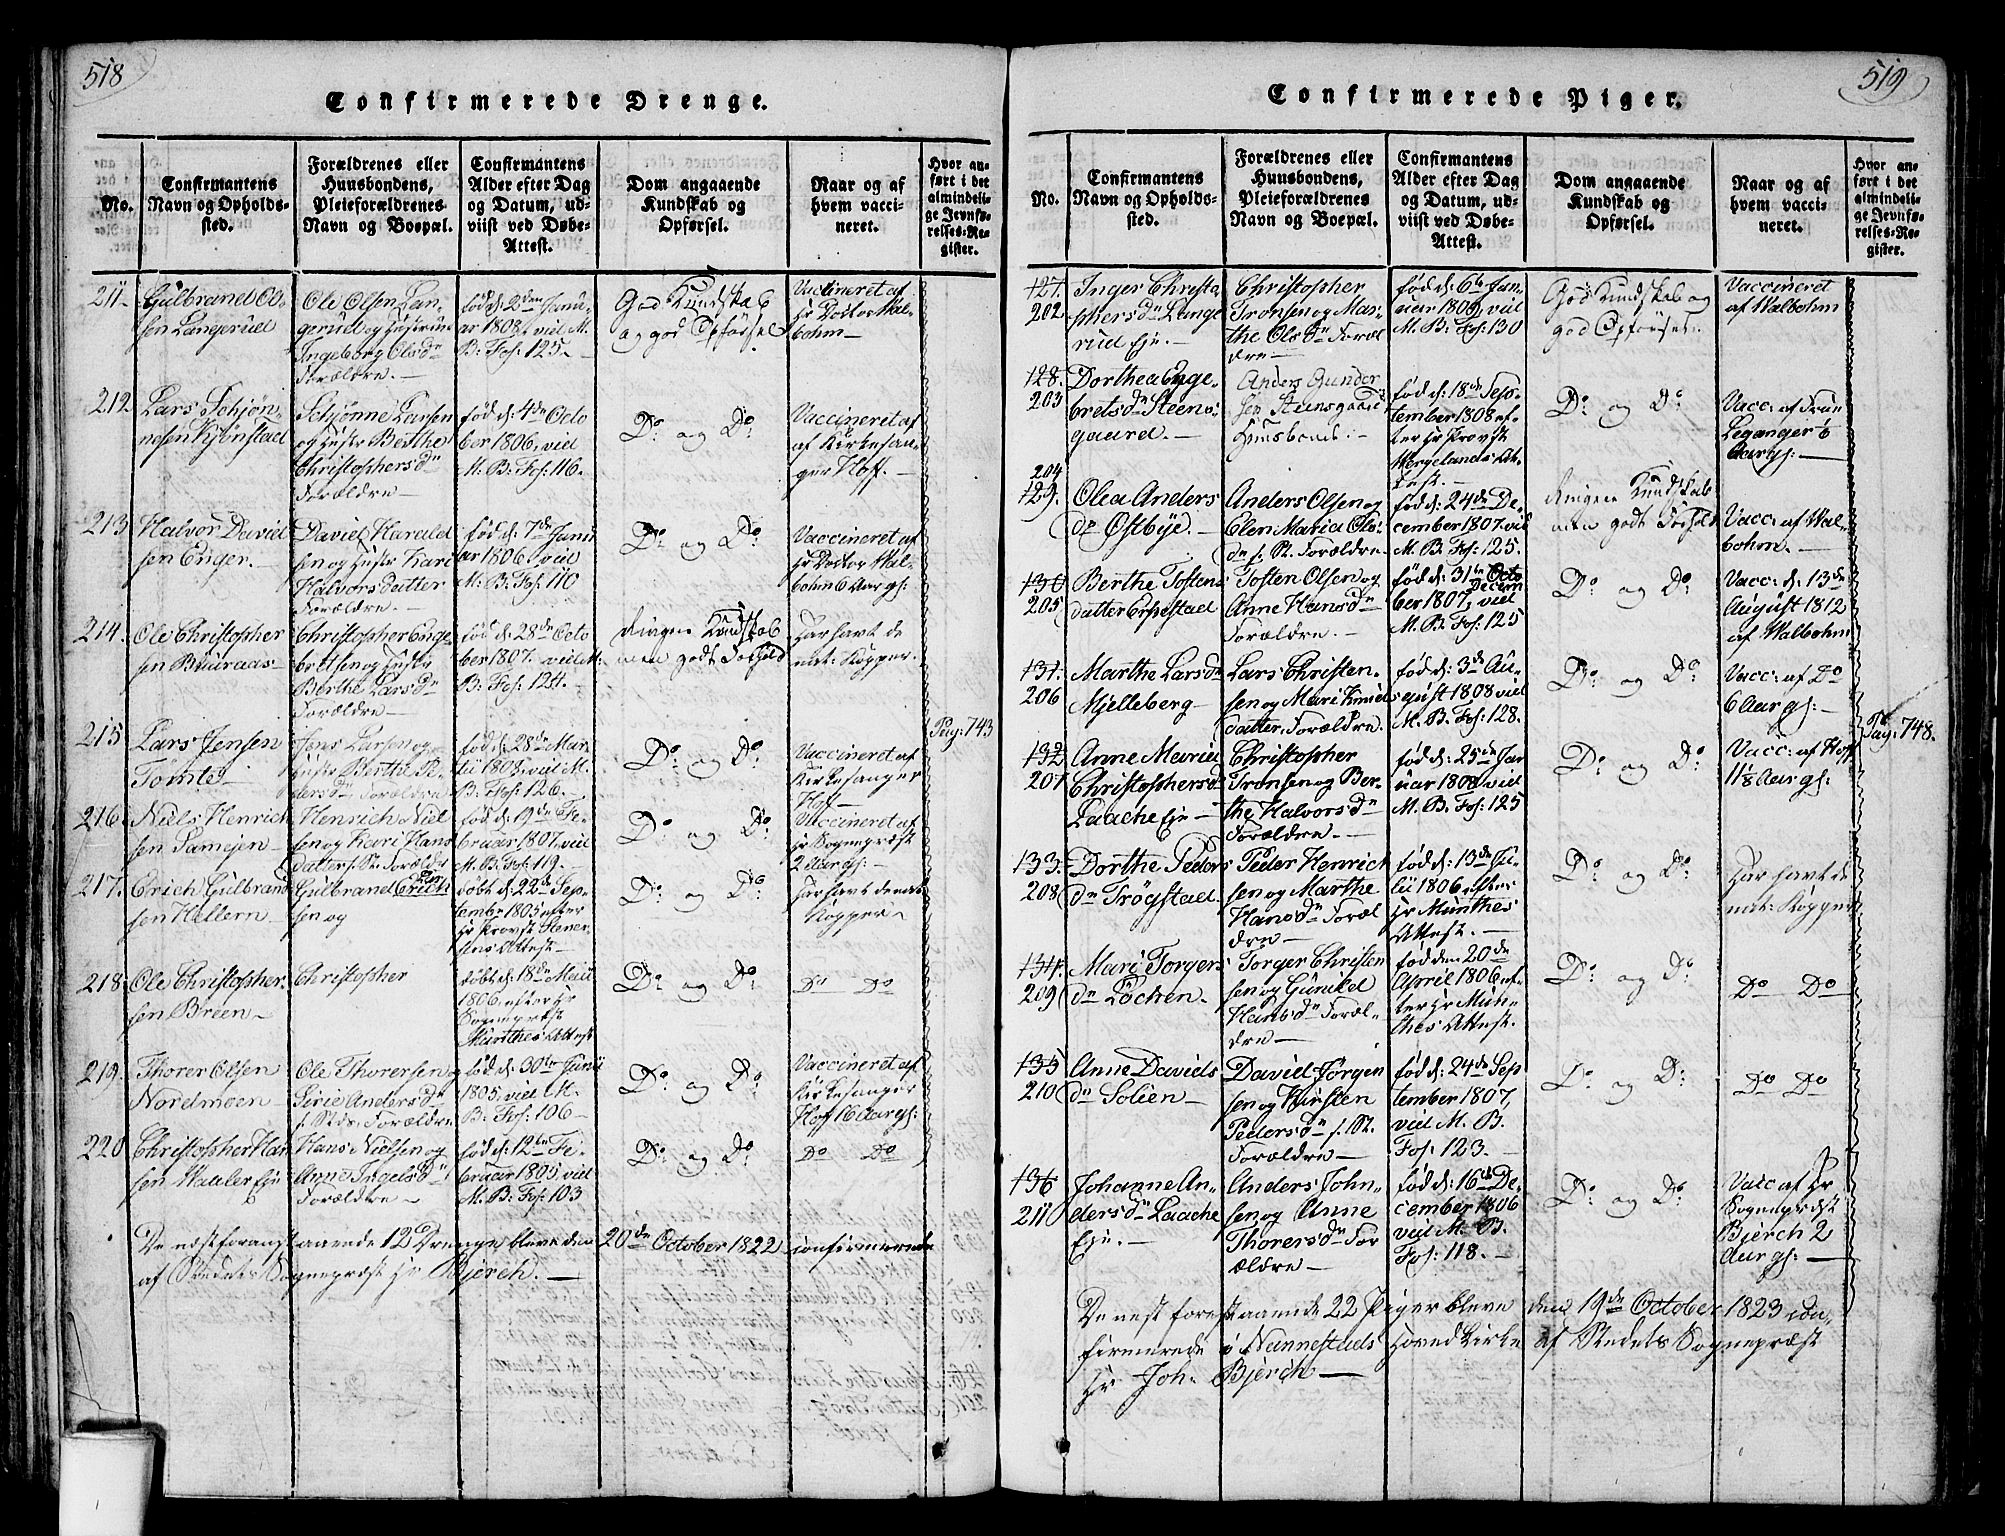 518
Confirmerede Drenge.
No.
Confirmantens
Navn og Opholds-
sted.
Forældrenes eller
Huusbondens,
Pleieforældrenes
Navn og Boepæl.
Confirmantens
Alder efter Dag
og Datum, ud-
viist ved Døbe-
Attest.
Dom angaaende
Kundskab og
Opførsel.
Naar og af
hvem vacci-
neret.
Hvor an-
ført i det
almindeli-
ge Jevnfø-
relses-Re-
gister.
211.
Gulbrand Ol-
sen Langerud
Ole Olsen Lan-
gerud og Hustrue
Ingeborg Olsdr
Forældre. —
fød d: 2den Janu-
ar 1808, vid M.
B: Fol: 125. —
God Kundskab
og god Opførsel
Vaccineret af
Hr Doctor Wal-
bohm —
212.
Lars Schjøn-
nesen Kjønstad
Schjønne Larsen
og Hustr Berthe
Christophersdr
Forældre —
fød d: 4de Octo
ber 1806, vid
M: B: Fol: 116. —
Do: og Do:
Vaccineret af
af Kirkesan-
ger Hoff. —
213
Halvor David
sen Enger. —
David Harald
sen og Hustr Kari
Halvorsdatter
Forældre. —
fød d: 7de Janu
ar 1806. vid
M: B: Fol: 110
Do: og Do:
Vaccineret af
Hr Doctor Wal-
bohm 6 Aar gl:
214.
Ole Christopher
sen Bruraas
Christopher Enge
bretsen og Hustr
Berthe Larsdr
Forældre —
fød d: 28de Octo
ber 1807. vid M:
B: Fol: 124.
Ringe Kundskab
men godt Forhold
Har havt de
nat: Kopper.
215
Lars Jensen
Tømte
Jens Larsen og
Hustr Berthe Pe-
dersdr Forældre
fød d: 28de Mar-
tii 1808, vid M.
B: Fol: 126. —
Do: og Do:
Vaccineret af
Kirkesanger
Hof —
Pag: 743
216
Niels Henrich
sen
Henrich Niel
sen og Kari Hans
datter f. St. Forældr
fød d: 19de Fe-
bruar 1807. vid
M. B: Fol: 119. —
Do: og Do:
Vaccineret af
Hr Sognepræst
2 Aar gl: —
217.
Erich Gulbrand
sen Hellern
Gulbrand Erich
sen og
døbt d: 22de Sep-
tember 1805 efter
Hr Provst
Attest —
Do: og Do:
har havt de nat:
Kopper
218
Ole Christopher-
sen Breen —
Christopher
døbt d: 18de Maii
1806. efter Hr
Sognepræst
Munthes Attest
Do: og Do:
Do Do
219.
Thorer Olsen
Nordmoen
Ole Thorersen
Sirie Andersdr
f. Stds Forældre
fød d: 30te Junii
1805, vid M.
B: Fol: 106 —
Do: og Do:
Vaccineret af
Kirkesanger
Hof 16 Aar gl:
220
Christopher Han
sen Waaler Eje
Hans Nielsen og
Anne Ingelsdr
Forældre —
fød d: 12te Fe-
bruar 1805, vid
M. B: Fol: 103
Do: og Do:
Do Do
De næstforanstaaende 12 Drenge bleve den 20de October 1822 confirmerede
af Stedets Sognepræst Hr Bjerch. —
519
Confirmerede Piger.
No.
Confirmantens
Navn og Opholds-
sted.
Forældrenes eller
Huusbondens,
Pleieforældrenes
Navn og Boepæl.
Confirmantens
Alder efter Dag
og Datum, ud-
viist ved Døbe-
Attest.
Dom angaaende
Kundskab og
Opførsel.
Naar og af
hvem vacci-
neret.
Hvor an-
ført i det
almindeli-
ge Jevnfø-
relses-Re-
gister.
127.
202.
Inger Christo
phersdr Lange
rud Eje. —
Christopher
Tronsen og Mar-
the Olsdr Foræl
dre —
fød d: 6te Jan-
uar 1809, vid
M. B: Fol: 130
God Kundskab og
god Opførsel:
Vaccineret
af Walbohm
128.
203
Dorthea Enge-
bretsdr Steens-
gaard. —
Anders Gunder
sen Steensgaard
Huusbond: —
fød d: 18de Sep-
tember 1808 ef-
ter Hr Provst
Wergelands At-
test. —
Do: og Do:
Vacc: af Frue
Leganger 6
Aar gl: —
204
129.
Olea Anders
dr Østbye. —
Anders Olsen og
Elen Maria Ols-
dr f. St. Forældre
fød d: 24de De-
cember 1807. vid
M. B: Fol: 125.
Ringe Kundskab
men godt Forhold
Vacc: af Wal-
bohm. —
130
205
Berthe Tostens
datter Erpestad
Tosten Olsen og
Anne Hansdr
Forældre. —
fød d: 31te Octo
Decem
ber 1807, vid
M. B: Fol: 125
Do: og Do:
Vacc: d: 13de
August 1812
af Walbohm
131.
206
Marthe Larsdr
Mjelleberg —
Lars Christen-
sen og Mari Knuds
datter, Forældre. —
fød d: 3de Au-
gust 1808 vid
M. B: Fol: 128.
Do: og Do:
Vacc: af Do
6 Aar gl: —
Pag: 748.
132
207
Anne Marie
Christophersdr
Laache Eje —
Christopher
Tronsen og Ber-
the Halvorsdr
Forældre. —
fød d: 25de Jan
uar 1808, vid
M. B: Fol: 125
Do: og Do:
Vacc: af Hoff
11½ Aar gl:
133.
208
Dorthe Peders
dr Trøgstad
Peder Henrich
sen og Marthe
Hansdr Foræl
dre —
fød d: 13de Ju-
lii 1806 efter
Hr Munthes
Attest. —
Do: og Do:
Har havt de
nat: Kopper
134.
209
Mari Torgers
dr Løchen —
Torger Christen
sen og Gunild
Hansdr Foræl-
dre —
fød den 20de
April 1806 ef-
ter Hr Mun-
thes Attest.
Do: og Do:
Do Do
135
210
Anne Davids
dr Solien —
David Jørgen
sen og Kirsten
Pedersdr f. St.
Forældre —
fød d: 24de Sep
tember 1807,
vid M. B.
Fol: 123. —
Do: og Do:
Do Do
136
211
Johanne An-
dersdr Laache
Eje. —
Anders John-
sen og Anne
Thorersdr For
ældre —
fød d: 16de De-
cember 1806
vid M. B.
Fol: 118. —
Do: og Do:
Vacc af Hr
Sognepræst
Bjerch 2
Aar gl: —
De næst forestaaende 22 Piger bleve den 19de October 1823 con-
firmerede i Nannestads Hoved Kirke af Stedets Sognepræst
Hr Joh. Bjerch —